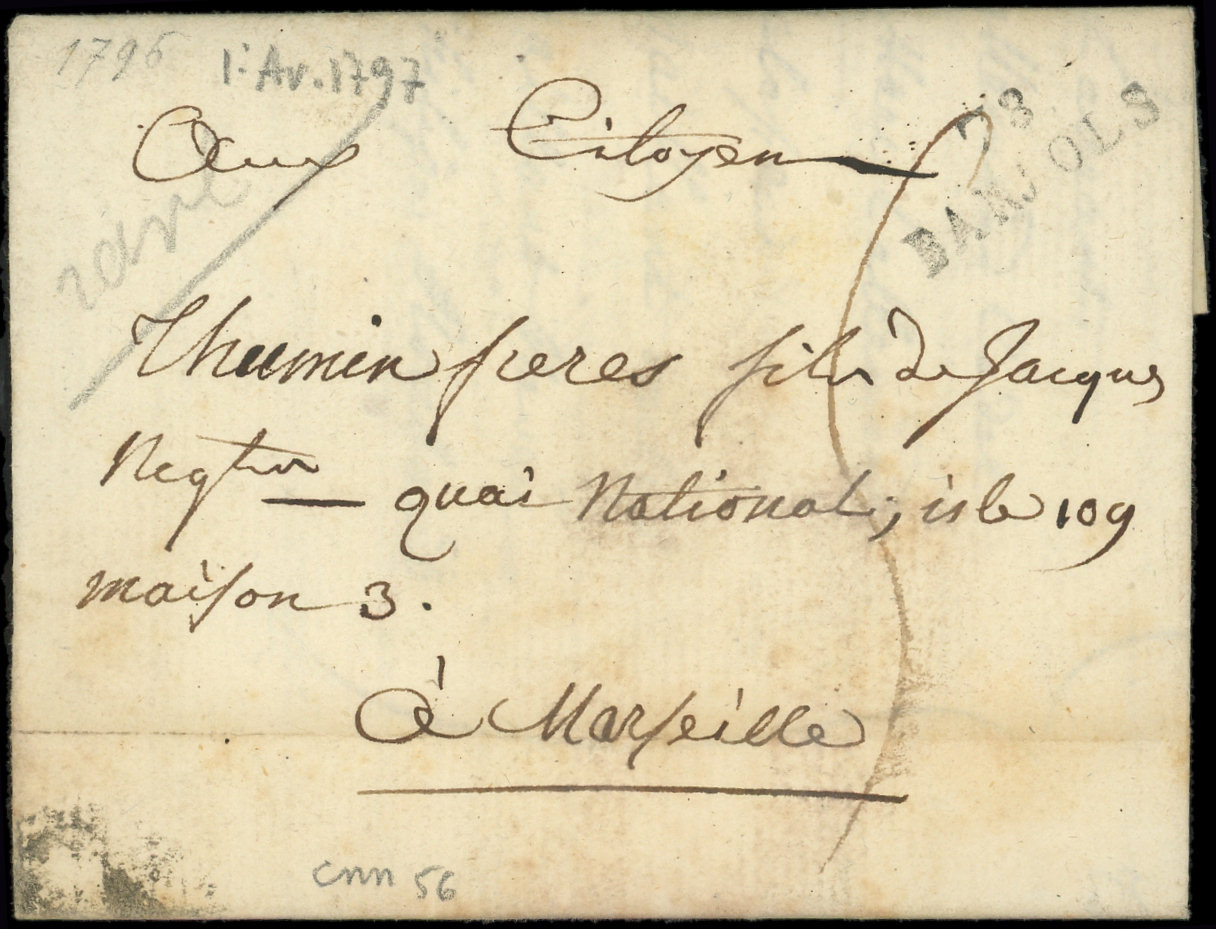 1796
1: Av. 1797
78
BARJOLS
Aux Citoyen
rare
Thumin freres fils de Jacques
Negts quai National, isle 109
maison 3.
à Marseille
cnn 56